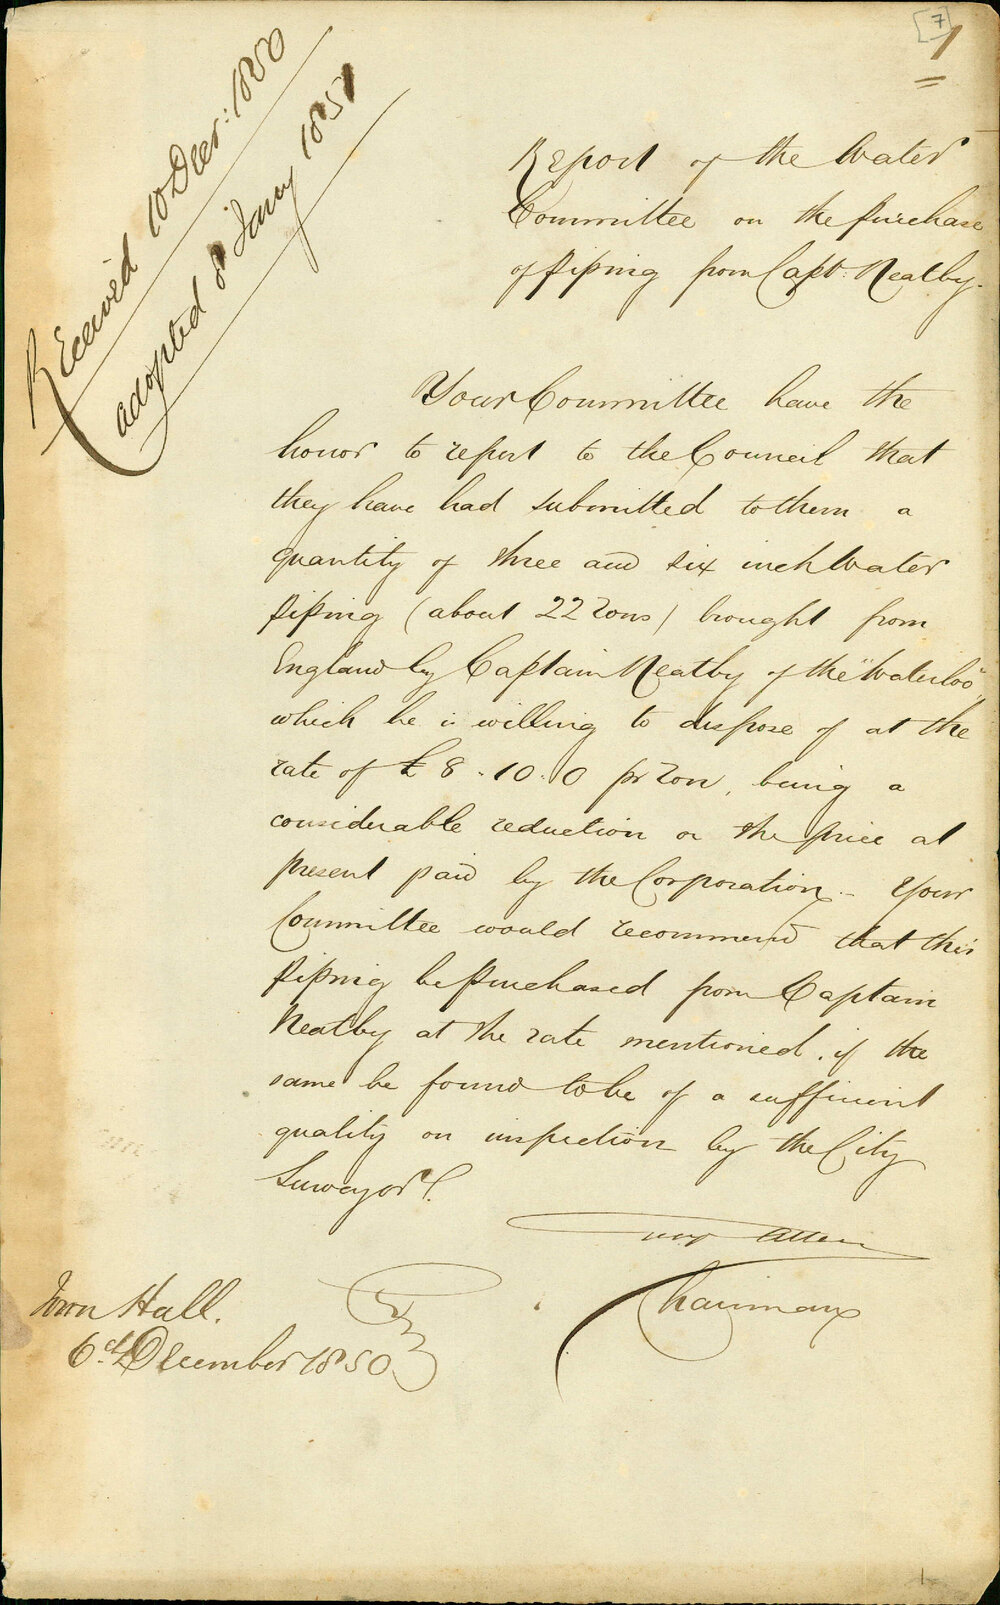 [7]
1
Received 10 Decr: 1850
adopted 8 Jany 1851
Report of the Water
Committee on the purchase
of piping from Capt: Neatby.
Your Committee have the
honor to report to the Council that
they have had submitted to them a
quantity of three and six inch Water
piping (about 22 Tons) brought from
England by Captain Neatby of the "Waterloo"
which he is willing to dispose of at the
rate of £8.10.0 pr Ton, being a
considerable reduction on the price at
present paid by the Corporation - Your
Committee would recommend that this
piping be purchased from Captain
Neatby at the rate mentioned, if the
same be found to be of a sufficient
quality on inspection by the City
Surveyor.
Allen
Chairman
Town Hall.
6th December 1850